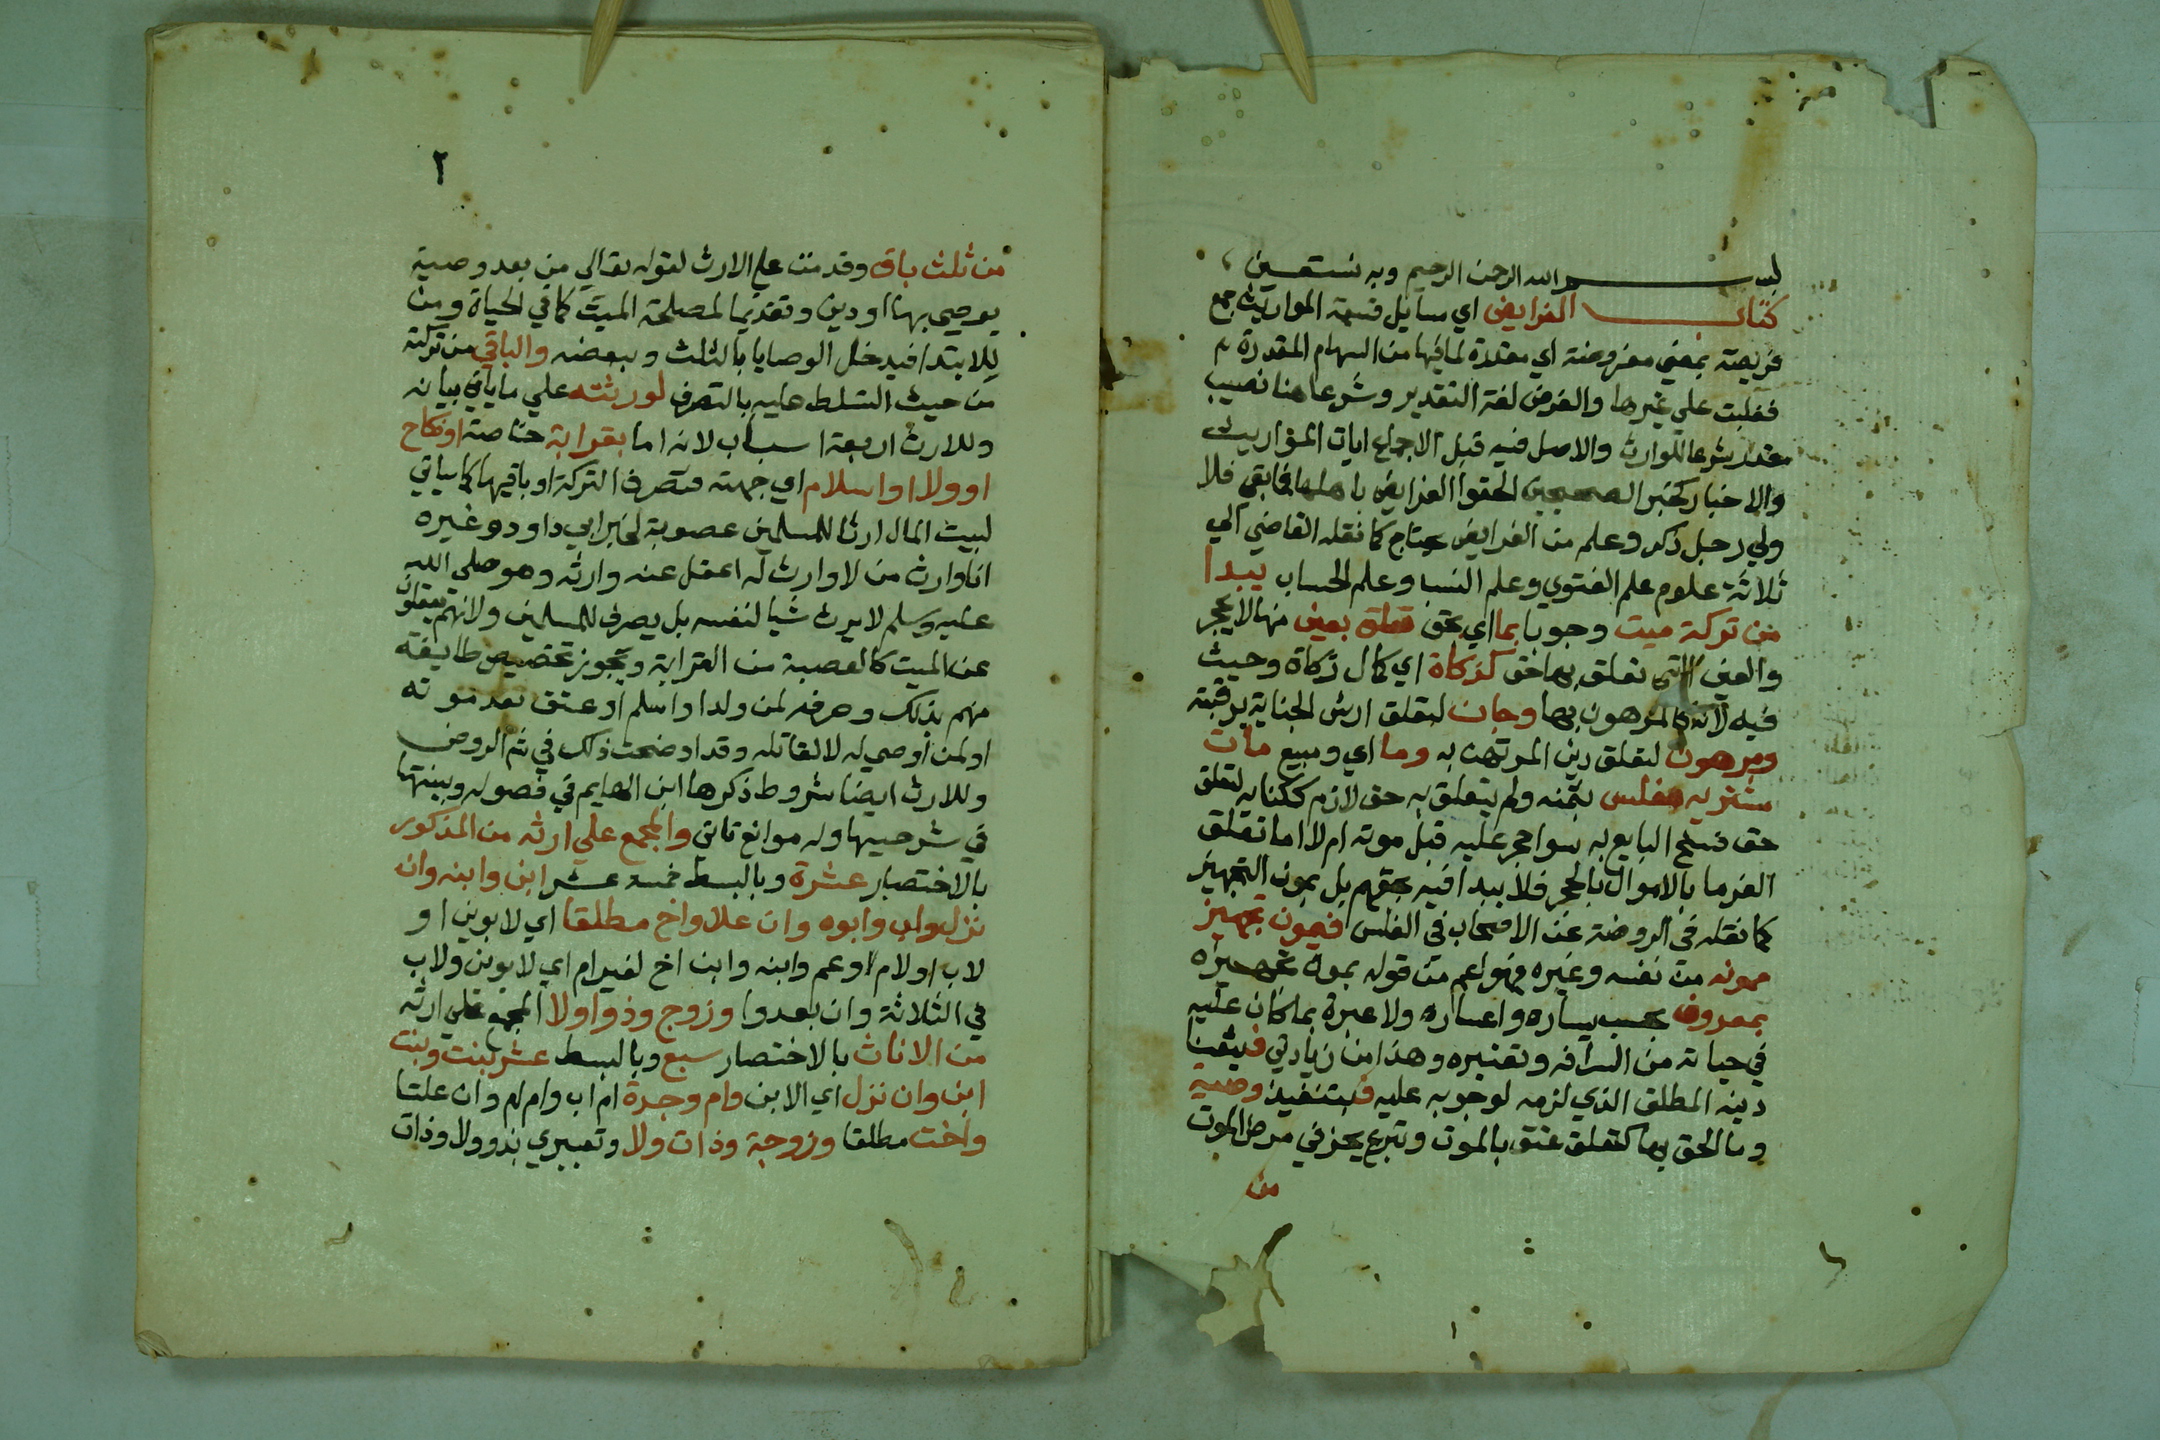 بسم الله الرحمن الرحيم وبه نستعين
كتاب الفرايض اي مسايل قسمة المواريث جمع
فريضة بمعني مفروضة اي مقدرة لما فيها من السهام المقدرة
فغلبت علي غيرها والفرض لغة التقدير وشرعا هنا نصيب
مقدر شرعا للوارث والاصل فيه قبل الاجماع ايات المواريث
والاخبار كخبر الصحيحين الحقوا الفرايض باهلها فما بقي فلا
ولي رجل ذكر وعلم من الفرايض محتاج كما نقله القاضي الي
ثلاثة علوم علم الفتوي وعلم النسب وعلم الحساب يبدا
من تركة ميت وجوبا بما اي بحق تعلق بعين منها لا بحجر
والعين التي تعلق بها حق كزكاة اي كمال زكاة وحيث
فيه لانه كالمرهون بها وجان لتعلق ارش الجناية برقبته
ومرهون لتعلق دين المرتهن به وما اي ومبيع مات
مشتريه مفلس بثمنه ولم يتعلق به حق لازم ككتابه لتعلق
حق فسخ البايع به سوا حجر عليه قبل موته ام لا اما تعلق
الغرما بالاموال بالحجر فلا يبدا فيه بحقهم بل بمون التجهيز
كما نقله في الروضة عن الاصحاب في الفلس فمون تجهيز
ممونه من نفسه وغيره فهو اعم من قوله بمونة تجهيزه
بمعروف بحسب يساره واعساره ولا عبرة بما كان عليه
في حياته من اسرافه وتقتيره وهذا من زيادتي فيقضا
دينه المطلق الذي لزمه لوجوبه عليه فبتنفيذ وصية
وما الحق بها كتعلق عتق بالموت وتبرع نجز في مرض الموت
من
٢
من ثلث باق وقدمت علي الارث لقوله تعالي من بعد وصية
يوصي بها او دين وتقديما لمصلحة الميت كما في الحياة ومن
للابتدا فيدخل الوصايا بالثلث وببعضه والباقي من تركته
من حيث التسلط عليه بالتصرف لورثته علي ما ياتي بيانه
وللارث اربعة اسباب لانه اما بقرابة خاصة او نكاح
او ولا او اسلام اي جهته فتصرف التركة او باقيها كما سياتي
لبيت المال ارثا للمسلمين عصوبة لخبر ابي داود وغيره
انا وارث من لا وارث له اعقل عنه وارثه وهو صلي الله
عليه وسلم لا يرث شيا لنفسه بل يصرف للمسلمين ولانهم يعقلون
عن الميت كالعصبة من القرابة ويجوز تخصيص طايفة
منهم بذلك وصرفه لمن ولد او اسلم او عتق بعد موته
او لمن اوصي له لا لقاتله وقد اوضحت ذلك في شرح الروض
وللارث ايضا شروط ذكرها ابن الهايم في فصوله وبينتها
في شرحيها وله موانع تاتي والمجمع علي ارثه من المذكور
بالاختصار عشرة وبالبسط خمسة عشر ابن وابنه وان
نزل واب وابوه وان علا واخ مطلقا اي لابوين او
لاب او لام او عم وابنه وابن اخ لغير ام اي لابوين ولاب
في الثلاثة وان بعدوا وزوج وذو ولا المجمع علي ارثه
من الاناث بالاختصار سبع وبالبسط عشر بنت وبنت
ابن وان نزل اي الابن وام وجدة ام اب وام ام وان علتا
واخت مطلقا وزوجة وذات ولا وتعبيري بذو ولا وذات